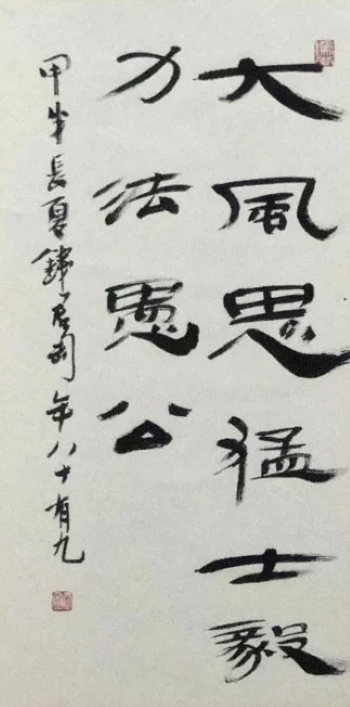 大風思猛士毅
力法愚公
甲長夏錢君匋年八十有九